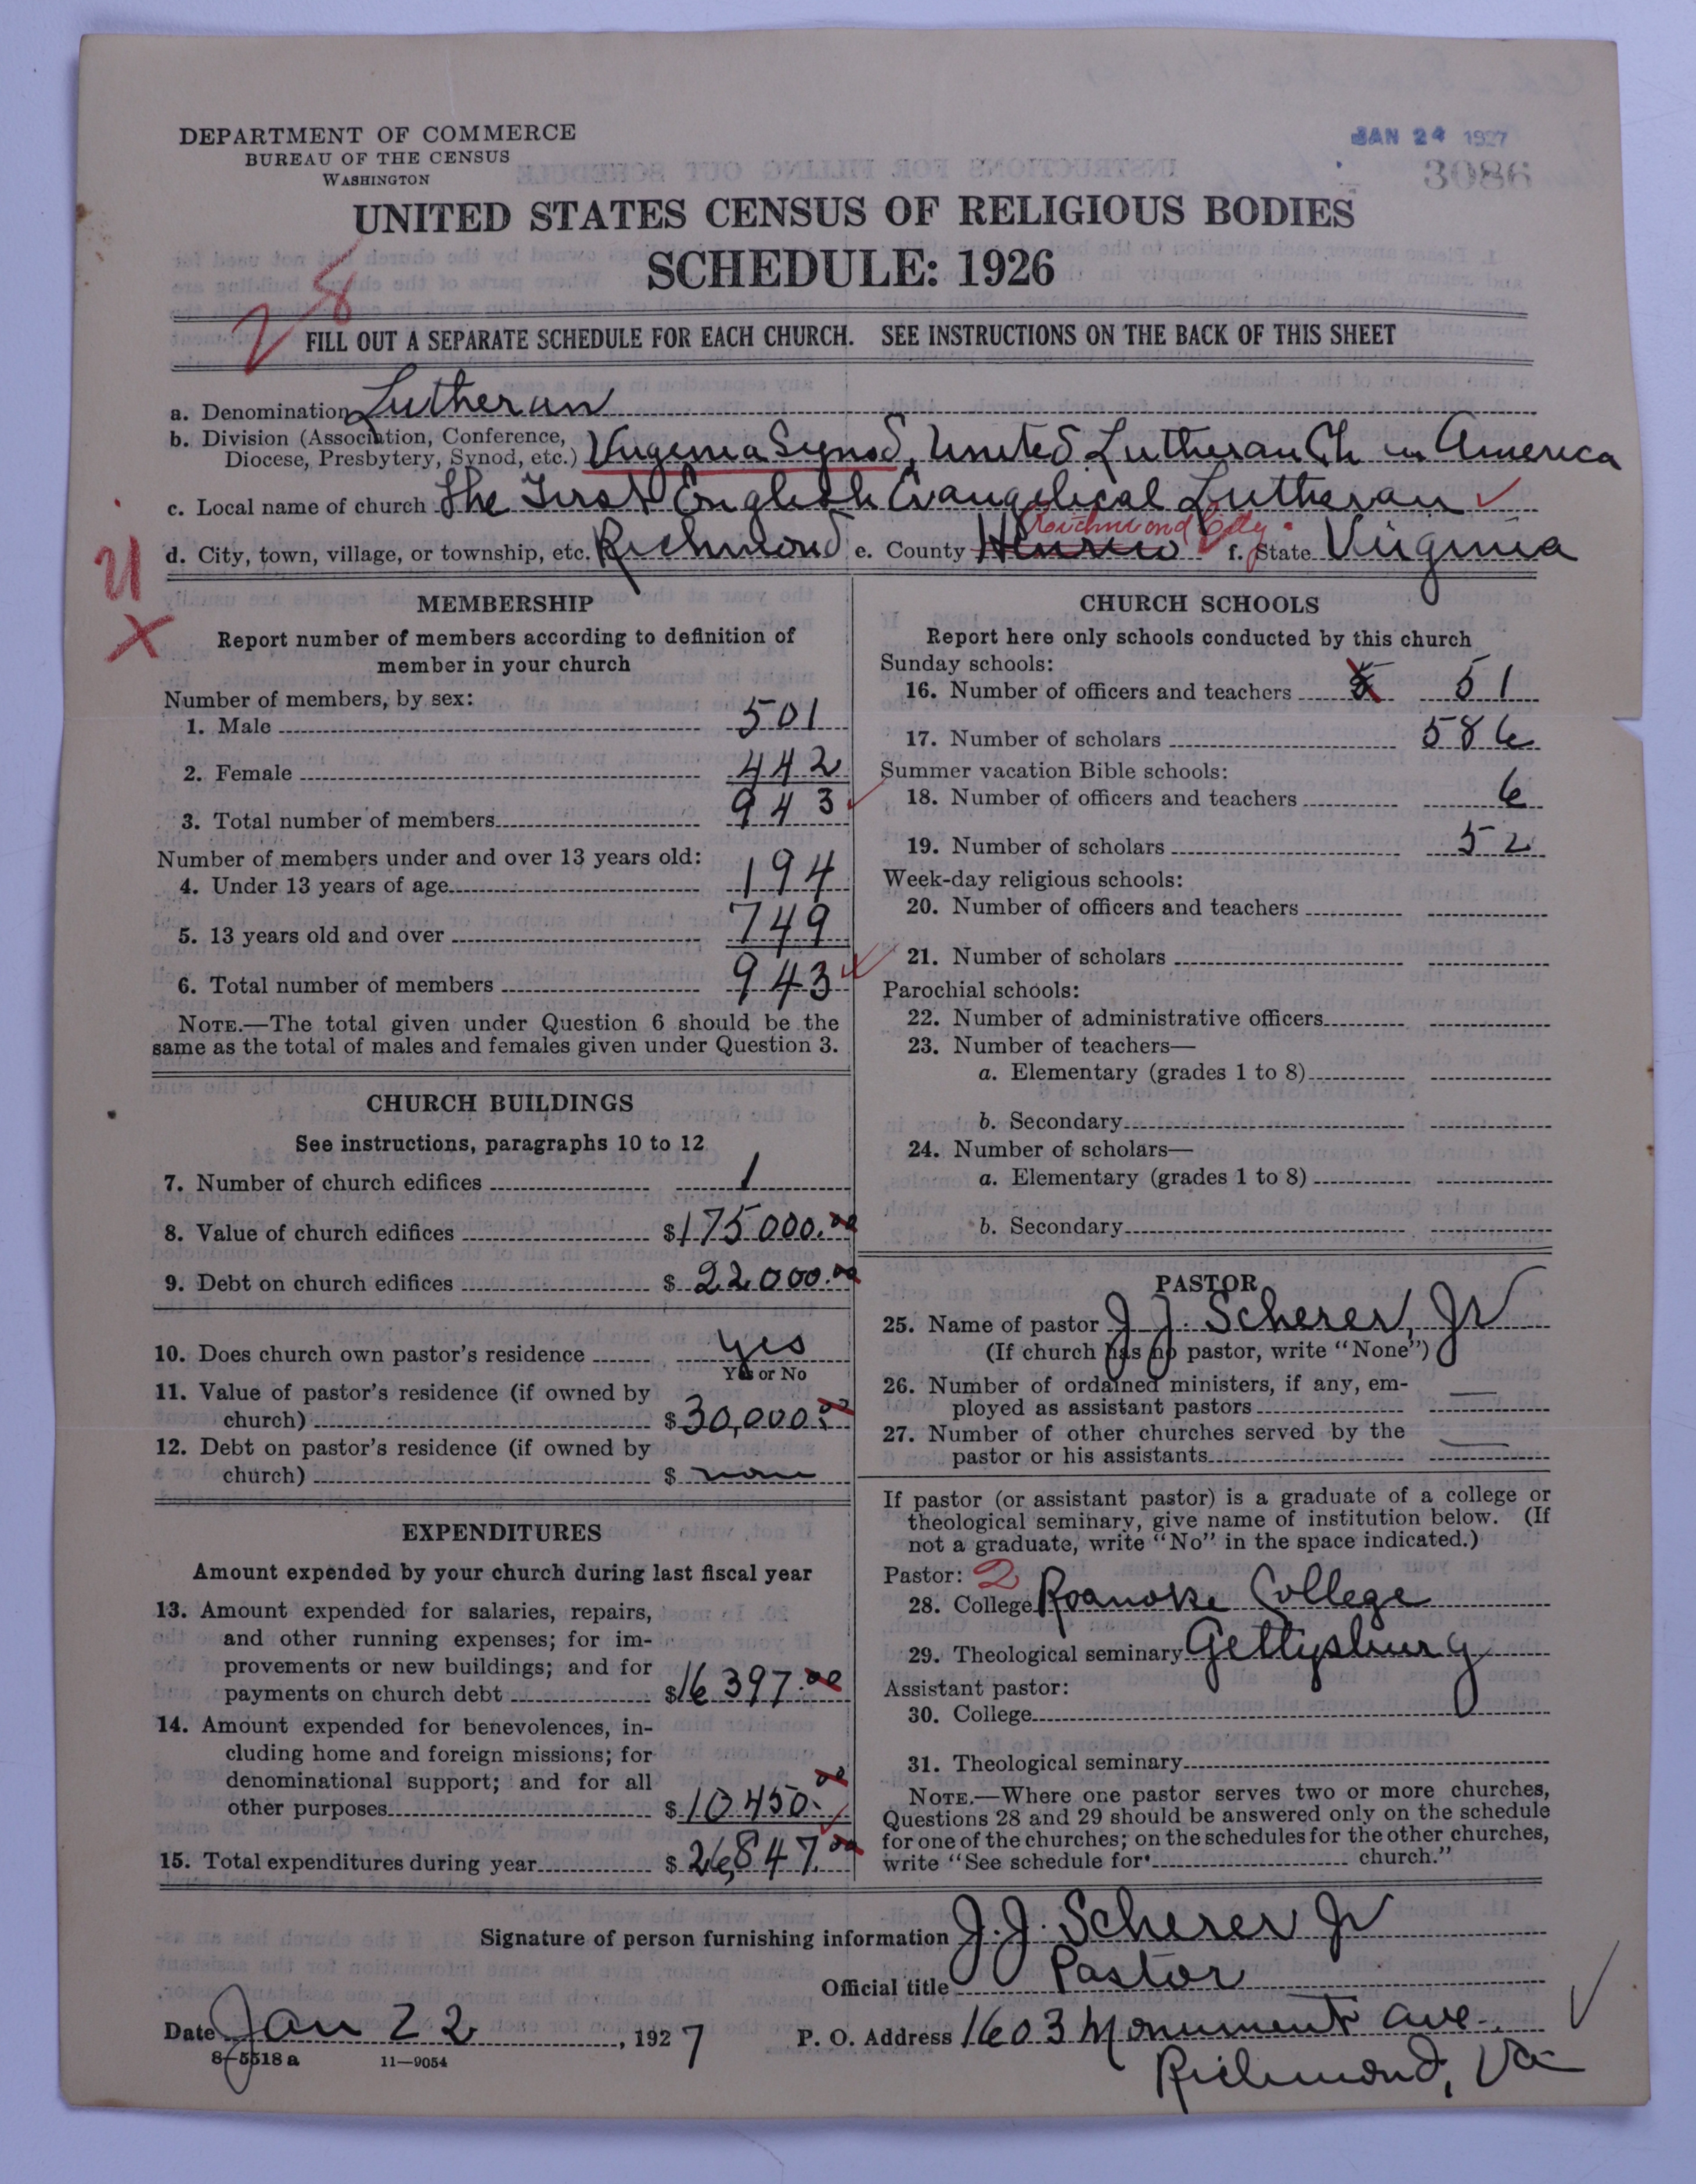 DEPARTMENT OF COMMERCE
BUREAU OF THE CENSUS
WASHINGTON
JAN 24 1927
3086
UNITED STATES CENSUS OF RELIGIOUS BODIES
SCHEDULE: 1926
28
FILL OUT A SEPARATE SCHEDULE FOR EACH CHURCH. SEE INSTRUCTIONS ON THE BACK OF THIS SHEET
a. Denomination Lutheran
b. Division (Association, Conference, Diocese, Presbytery, Synod, etc.) Virginia Synod, United Lutheran Ch in America
c. Local name of church The First English Evangelical Lutheran
Richmond City
d. City, town, village, or township, etc. Richmond e. County Henrico f. State Virginia
MEMBERSHIP
Report number of members according to definition of
member in your church
Number of members, by sex:
1. Male 501
2. Female 442
3. Total number of members 943
Number of members under and over 13 years old:
4. Under 13 years of age 194
5. 13 years old and over 749
6. Total number of members 943
NOTE.—The total given under Question 6 should be the
same as the total of males and females given under Question 3.
CHURCH BUILDINGS
See instructions, paragraphs 10 to 12
7. Number of church edifices 1
8. Value of church edifices $175000.00
9. Debt on church edifices $22000.00
10. Does church own pastor's residence yes
Yes or No
11. Value of pastor's residence (if owned by
church) $30,000.00
12. Debt on pastor's residence (if owned by
church) $none
EXPENDITURES
Amount expended by your church during last fiscal year
13. Amount expended for salaries, repairs,
and other running expenses; for im-
provements or new buildings; and for
payments on church debt $16397.00
14. Amount expended for benevolences, in-
cluding home and foreign missions; for
denominational support; and for all
other purposes $10450.00
15. Total expenditures during year $26,847.00
CHURCH SCHOOLS
Report here only schools conducted by this church
Sunday schools:
16. Number of officers and teachers 51
17. Number of scholars 586
Summer vacation Bible schools:
18. Number of officers and teachers 6
19. Number of scholars 52
Week-day religious schools:
20. Number of officers and teachers
21. Number of scholars
Parochial schools:
22. Number of administrative officers
23. Number of teachers—
a. Elementary (grades 1 to 8)
b. Secondary
24. Number of scholars—
a. Elementary (grades 1 to 8)
b. Secondary
PASTOR
25. Name of pastor J. J. Scherer, Jr
(If church has no pastor, write "None")
26. Number of ordained ministers, if any, em-
ployed as assistant pastors —
27. Number of other churches served by the
pastor or his assistants —
If pastor (or assistant pastor) is a graduate of a college or
theological seminary, give name of institution below. (If
not a graduate, write "No" in the space indicated.)
Pastor: 2
28. College Roanoke College
29. Theological seminary Gettysburg
Assistant pastor:
30. College
31. Theological seminary
NOTE.—Where one pastor serves two or more churches,
Questions 28 and 29 should be answered only on the schedule
for one of the churches; on the schedules for the other churches,
write "See schedule for church."
Signature of person furnishing information J. J. Scherer Jr
Official title Pastor
Date Jan 22, 1927 P. O. Address 1603 Monument Ave.
Richmond, Va
8-5518 a 11-9054